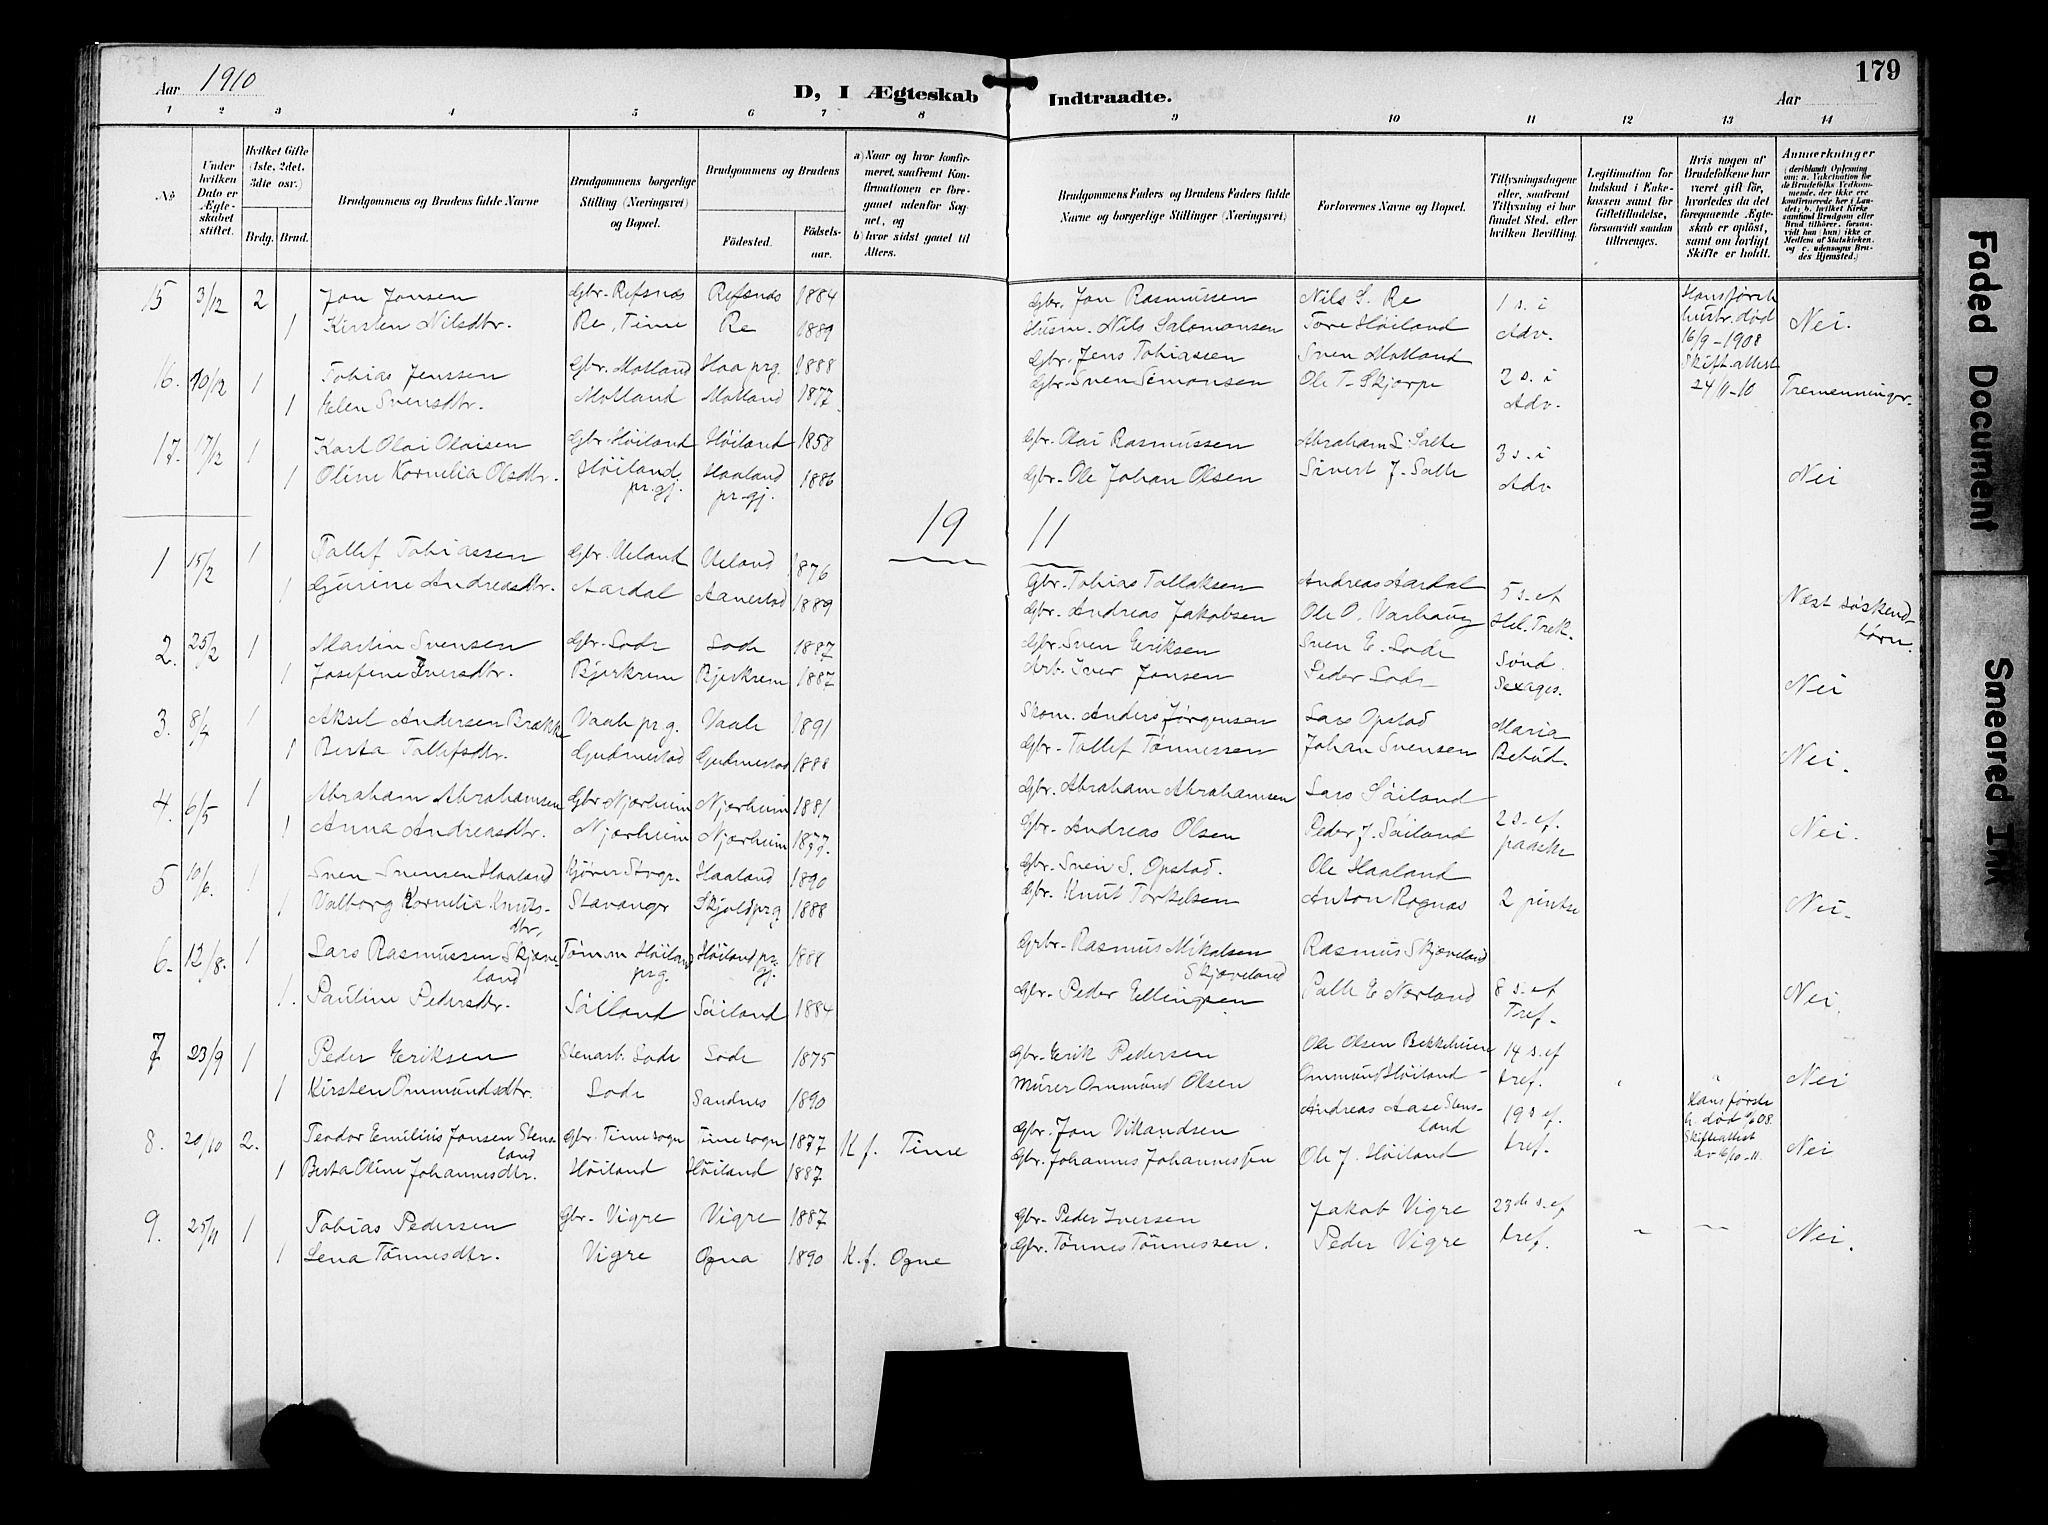 179
Aar 1910
D, I Ægteskab Indtraadte.
Aar
1 2 3 4 5 6 7 8 9 10 11 12 13 14
No
Under hvilken Dato er Ægteskabet stiftet.
Hvilket Gifte (1ste, 2det, 3die osv.)
Brdg. Brud.
Brudgommens og Brudens fulde Navne
Brudgommens borgerlige Stilling (Næringsvei) og Bopæl.
Brudgommens og Brudens
Fødested. Fødsels-aar.
a) Naar og hvor konfirmeret, saafremt Konfirmationen er foregaaet udenfor Sognet, og
b) hvor sidst gaaet til Alters.
Brudgommens Faders og Brudens Faders fulde Navne og borgerlige Stillinger (Næringsvei)
Forlovernes Navne og Bopæl.
Tillysningsdagene eller, saafremt Tillysning ei har fundet Sted, efter hvilken Bevilling.
Legitimation for Indskud i Enkekassen samt for Giftetilladelse, forsaavidt saadan tiltrænges.
Hvis nogen af Brudefolkene har været gift før, hvorledes da det foregaaende Ægteskab er opløst, samt om lovligt Skifte er holdt.
Anmærkninger
(deriblandt Oplysning om: a. Vakcination for de Brudefolks Vedkommende, der ikke ere konfirmerede her i Landet; b. hvilket Kirkesamfund Brudgom eller Brud tilhører, forsaavidt han (hun) ikke er Medlem af Statskirken, og c. udensogns Brudes Hjemsted.)
15 3/12 2 Jon Jonsen Gbr. Refsnes Refsnes 1884 Gbr. Jon Rasmussen Nils S. Re 1 s. i Hans første
1 Kirsten Nilsdtr. Re, Time Re 1889 Husm. Nils Salomonsen Tore Høiland Adv. hustr. død Nei.
16/9-1908
16. 10/12 1 Tobias Jenssen Gbr. Motland Haa prg. 1888 Gbr. Jens Tobiassen Sven Motland 2 s. i Skift. attest
1 Helen Svensdtr. Motland Motland 1877 Gbr. Sven Simonsen Ole T. Skjorpe Adv. 24/11-10 Tremenninger.
17. 17/12 1 Karl Olai Olaisen Gbr. Høiland Høiland 1858 Gbr. Olai Rasmussen Abraham L. Salte 3 s. i
1 Oline Kornelia Olsdtr. Høiland pr.gj. Haaland pr.gj. 1886 Gbr. Ole Johan Olsen Sivert J. Salte Adv Nei
19 11
1 15/2 1 Tollef Tobiassen Gbr. Ueland Ueland 1876 Gbr. Tobias Tollaksen Andreas Aardal 5 s. ef
1 Gurine Andreasdtr. Aardal Aanestad 1889 Gbr. Andreas Jakobsen Ole O. Varhaug Hel. Trek. Næst søskendbørn.
2. 25/2 1 Martin Svensen Gbr. Lode Lode 1887 Gbr. Sven Eriksen Sven E. Lode Sønd.
1 Josefine Iversdtr. Bjerkrem Bjerkrem 1887 Arb. Iver Jonsen Peder Lode Sexages. Nei
3. 8/4 1 Aksel Andersen Brække Vaale prg. Vaale 1891 Skom. Anders Jørgensen Lars Opstad Maria
1 Berta Tollefsdtr. Gudmestad Gudmestad 1888 Gbr. Tollef Tønnessen Johan Svensen Bebud. Nei.
4. 6/5 1 Abraham Abrahamsen Gbr Njærheim Njærheim 1881 Gbr. Abraham Abrahamsen Lars Søiland
1 Anna Andreasdtr. Njærheim Njærheim 1877. Gbr. Andreas Olsen Peder J. Søiland 2 s. ef. paaske Nei.
5 10/6. 1 Sven Svensen Haaland Haaland 1890 Gbr. Sven S. Opstad. Ole Haaland
1 Valborg Kornelia Knutsdtr. Stavanger Skjold prg 1888 Gbr. Knut Torkelsen Anton Rognas 2 pintse Nei.
6. 12/8. 1 Lars Rasmussen Skjæveland Tømm Høiland prg. Høiland pr.gj. 1888 Grbr. Rasmus Mikalsen Skjæveland Rasmus Skjæveland
1. Pauline Pedersdtr. Søiland Søiland 1884 Gbr. Peder Ellingsen Palle E Nærland 8 s. ef Tref. Nei.
7 23/9 1 Peder Eriksen Stenarb. Lode Lode 1875 Gbr. Erik Pedersen Ole Olsen Bekkeheien 14 s. ef
1 Kirsten Ommundsdtr. Lode Sandnes 1890 Murer Ommund Olsen Ommund Høiland tref. " Nei
8. 20/10 2. Teodor Emilius Jonsen Stensland Gbr. Time sogn Time sogn 1877 K.f. Time Gbr. Jon Villandsen Andreas Aase Stensland 19 s ef. Hans første h. død 08. Skifteattest av 6/10-11.
1 Berta Oline Johannesdtr. Høiland Høiland 1887 Gbr. Johannes Johannessen Ole J. Høiland tref. Nei
9. 25/11 1 Tobias Pedersen Gbr. Vigre Vigre 1887 Gbr. Peder Iversen Jakob Vigre 23de s. ef
1 Lena Tønnesdtr. Vigre Ogna 1890 K.f. Ogne Gbr. Tønnes Tønnessen. Peder Vigre tref. Nei.
Faded Document
Smeared Ink